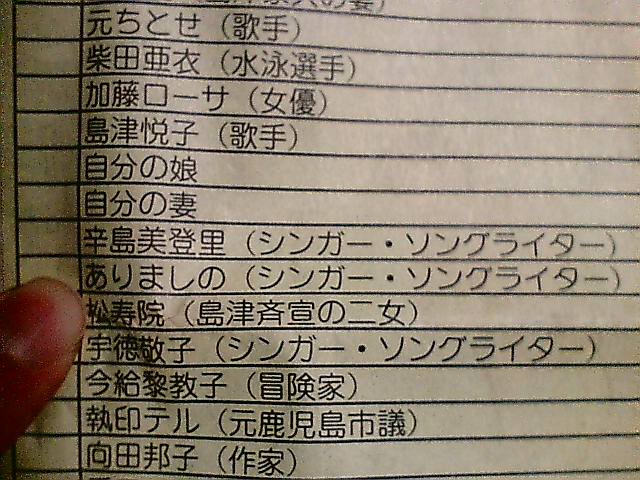 の妻）
元ちとせ（歌手）
柴田亜衣（水泳選手）
加藤ローサ（女優）
島津悦子（歌手）
自分の娘
自分の妻
辛島美登里（シンガー・ソングライター）
ありましの（シンガー・ソングライター）
松寿院（島津斉宣の二女）
宇徳敬子（シンガー・ソングライター）
今給黎教子（冒険家）
執印テル（元鹿児島市議）
向田邦子（作家）